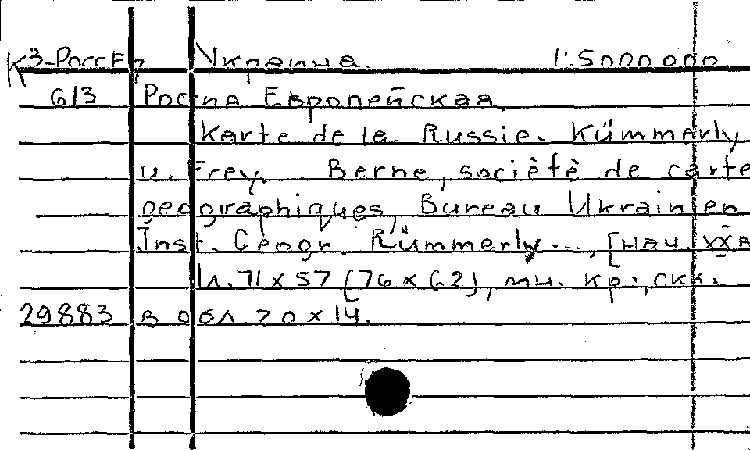 К3-РоссЕв Украина. 1:5000000
6/3 Россия Европейская
Karte de la Russie. Kümmerly
u. Frey. Berne, société de carte
geographiques, Bureau Ukrainien
Inst. Geogr. Kümmerly..., [нач. XX в
1 л. 71 x 57 (76 x 62), мн. кр., скл.
29883 в обл 20 x 14.